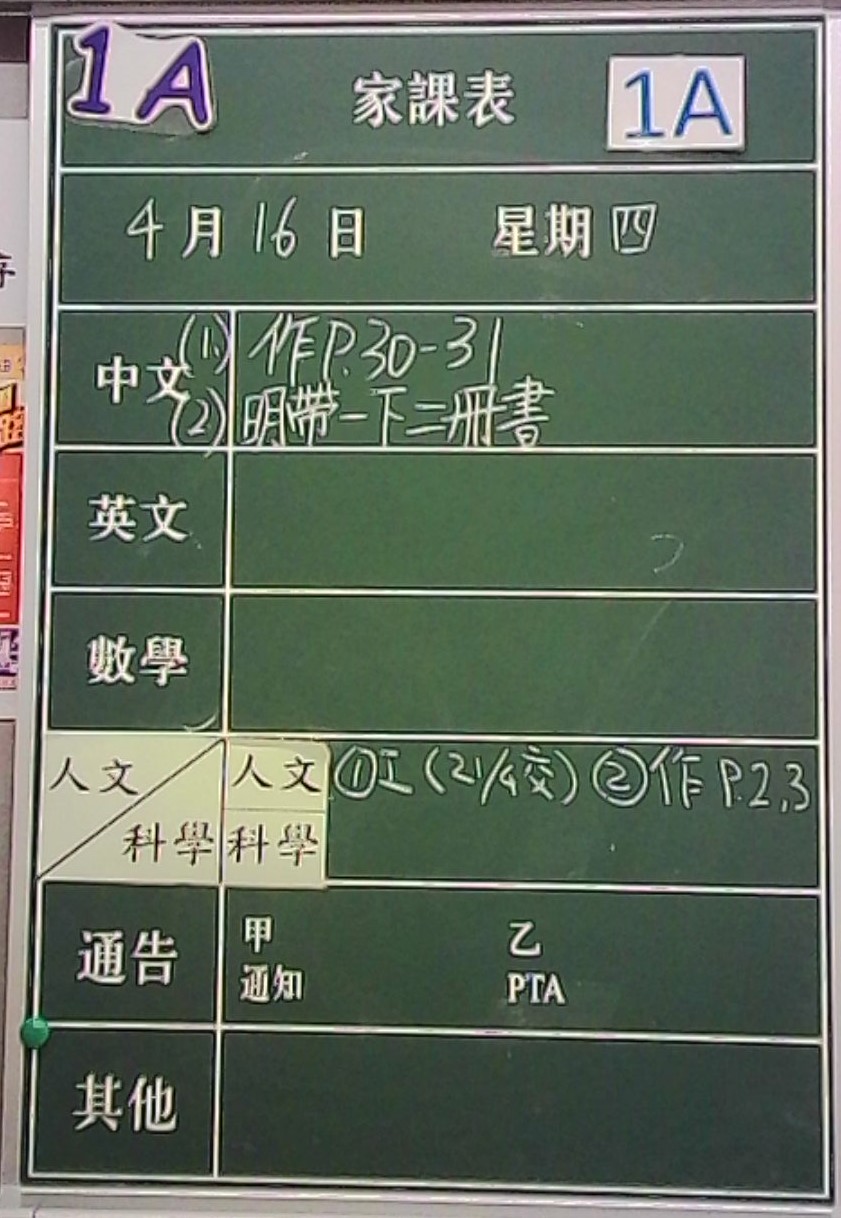 1A 家課表 1A
4月16日 星期四
中文 (1) 作P.30-31
(2) 明帶一下二冊書
英文
數學
人文 人文 ①工(21/4交) ②作 P.2,3
科學 科學
通告 甲 乙
通知 PTA
其他